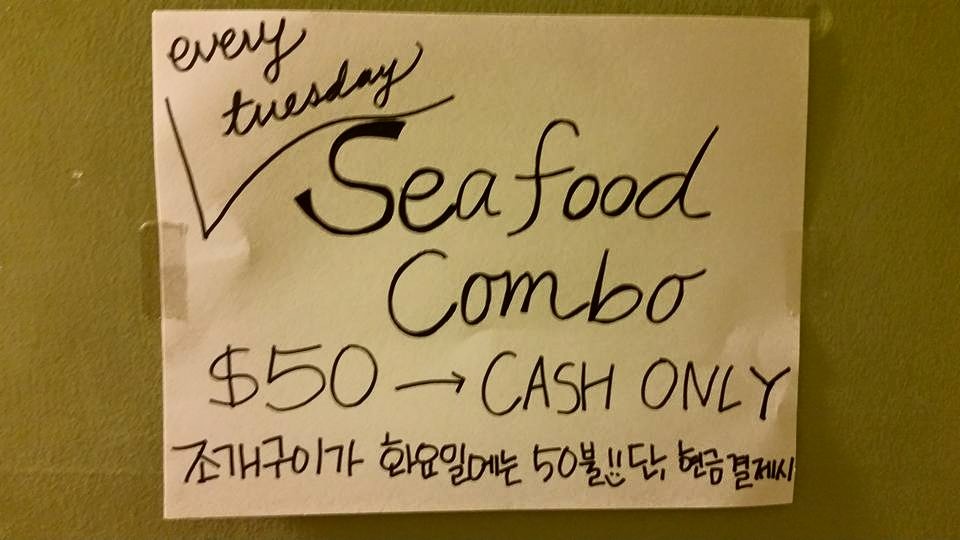 every
tuesday
Seafood
Combo
$50 → CASH ONLY
조개구이가 화요일에는 50불!! 단, 현금결제시